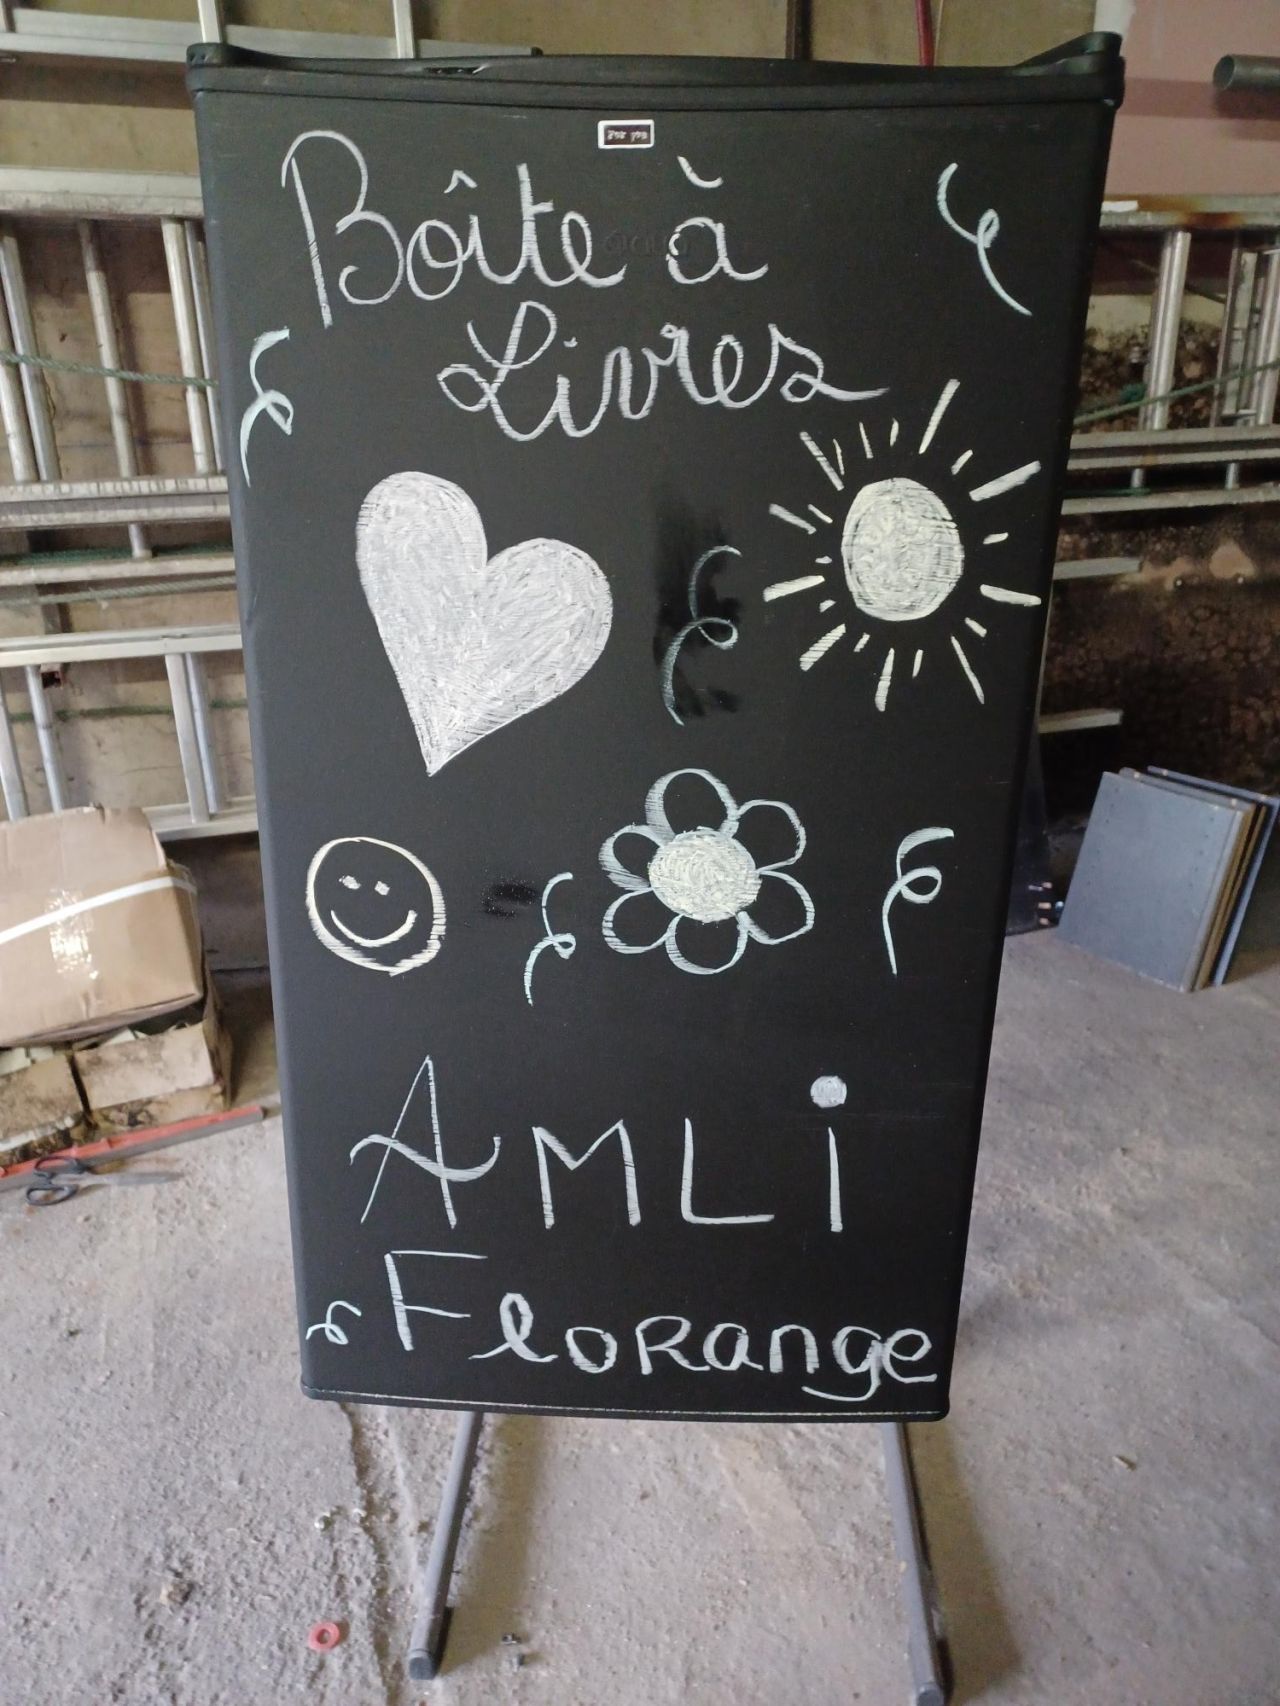 Boîte à
Livres
AMLi
FloRange